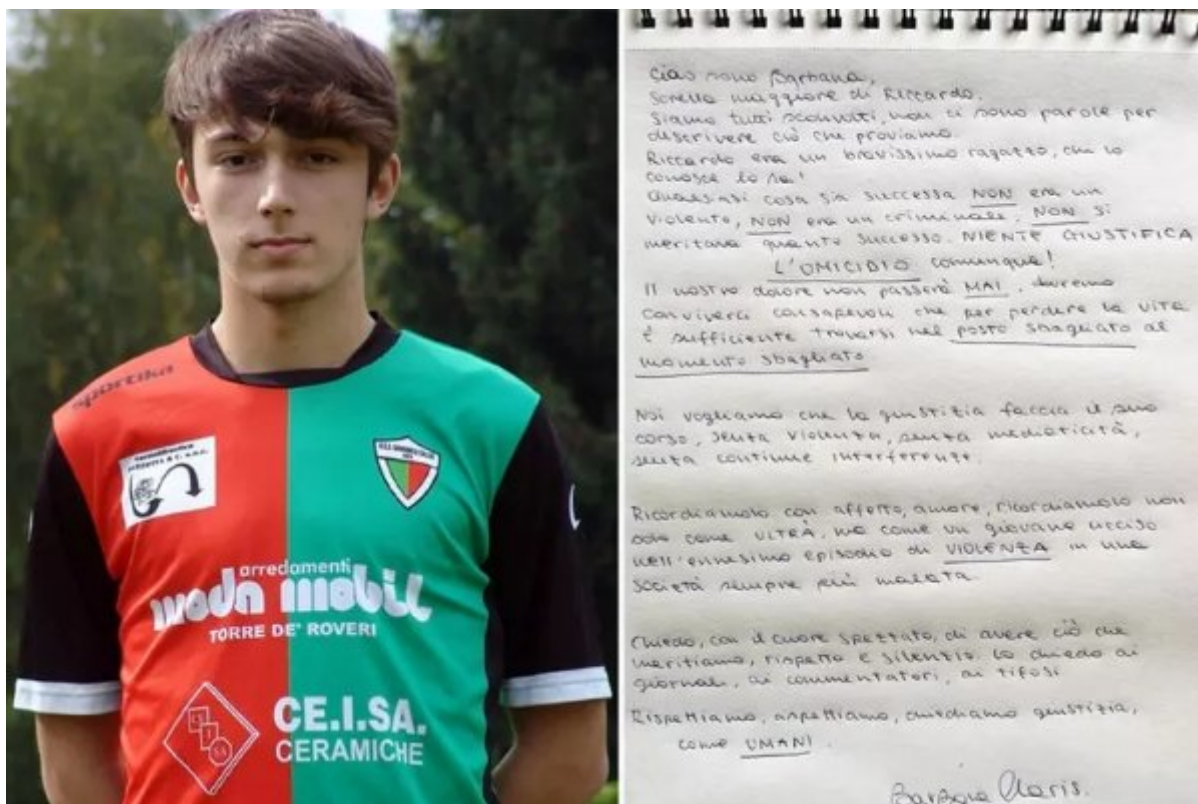 sportika
arredamenti
moda mobil
TORRE DE' ROVERI
CE.I.SA.
CERAMICHE
Ciao sono Barbara,
Sorella maggiore di Riccardo.
Siamo tutti sconvolti, non ci sono parole per
descrivere ciò che proviamo.
Riccardo era un bravissimo ragazzo, chi lo
conosce lo sa!
Qualsiasi cosa sia successa NON era un
violento, NON era un criminale. NON si
meritava quanto successo. NIENTE GIUSTIFICA
L'OMICIDIO comunque!
Il nostro dolore non passerà MAI, dovremo
conviverci consapevoli che per perdere la vita
è sufficiente trovarsi nel posto sbagliato al
momento sbagliato
Noi vogliamo che la giustizia faccia il suo
corso, senza violenza, senza mediaticità,
senza continue interferenze.
Ricordiamolo con affetto, amore, ricordiamolo non
solo come ULTRÀ, ma come un giovane ucciso
nell'ennesimo episodio di VIOLENZA in una
società sempre più malata.
Chiedo, con il cuore spezzato, di avere ciò che
meritiamo, rispetto e silenzio. Lo chiedo ai
giornali, ai commentatori, ai tifosi.
Rispettiamo, aspettiamo, chiediamo giustizia,
come UMANI.
Barbara Claris.